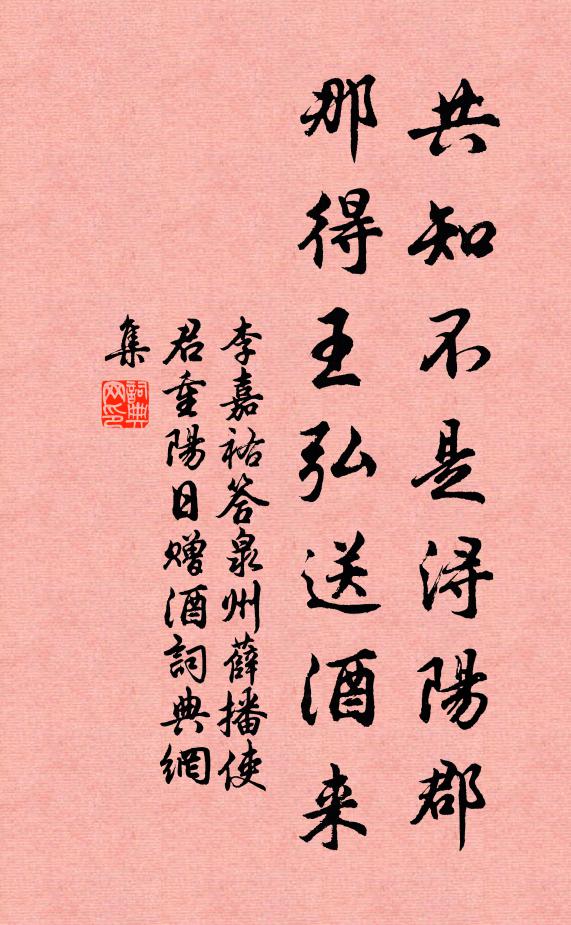 共知不是浔陽郡
那得王弘送酒来
李嘉祐答泉州薛播使
君重陽日赠酒詞典網
集
詞典网印